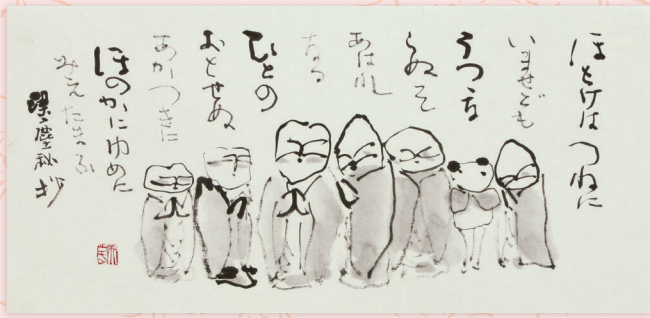 ほとけはつねに
いませども
うつつな
らぬそ
あはれ
なる
ひとの
おとせぬ
あかつきに
ほのかにゆめに
みえたまふ
梁塵秘抄